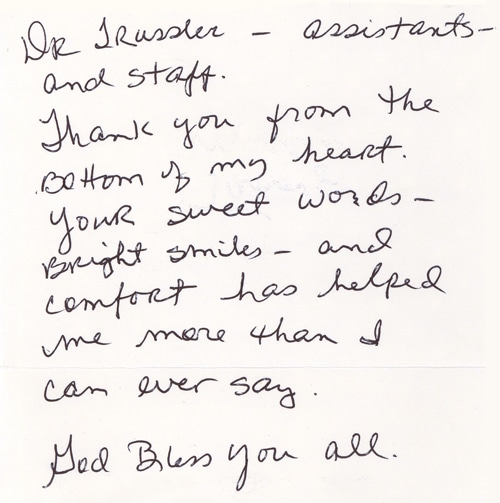 Dr Trussler - assistants -
and staff.
Thank you from the
Bottom of my heart.
your sweet words -
Bright smiles - and
comfort has helped
me more than I
can ever say.
God Bless you all.